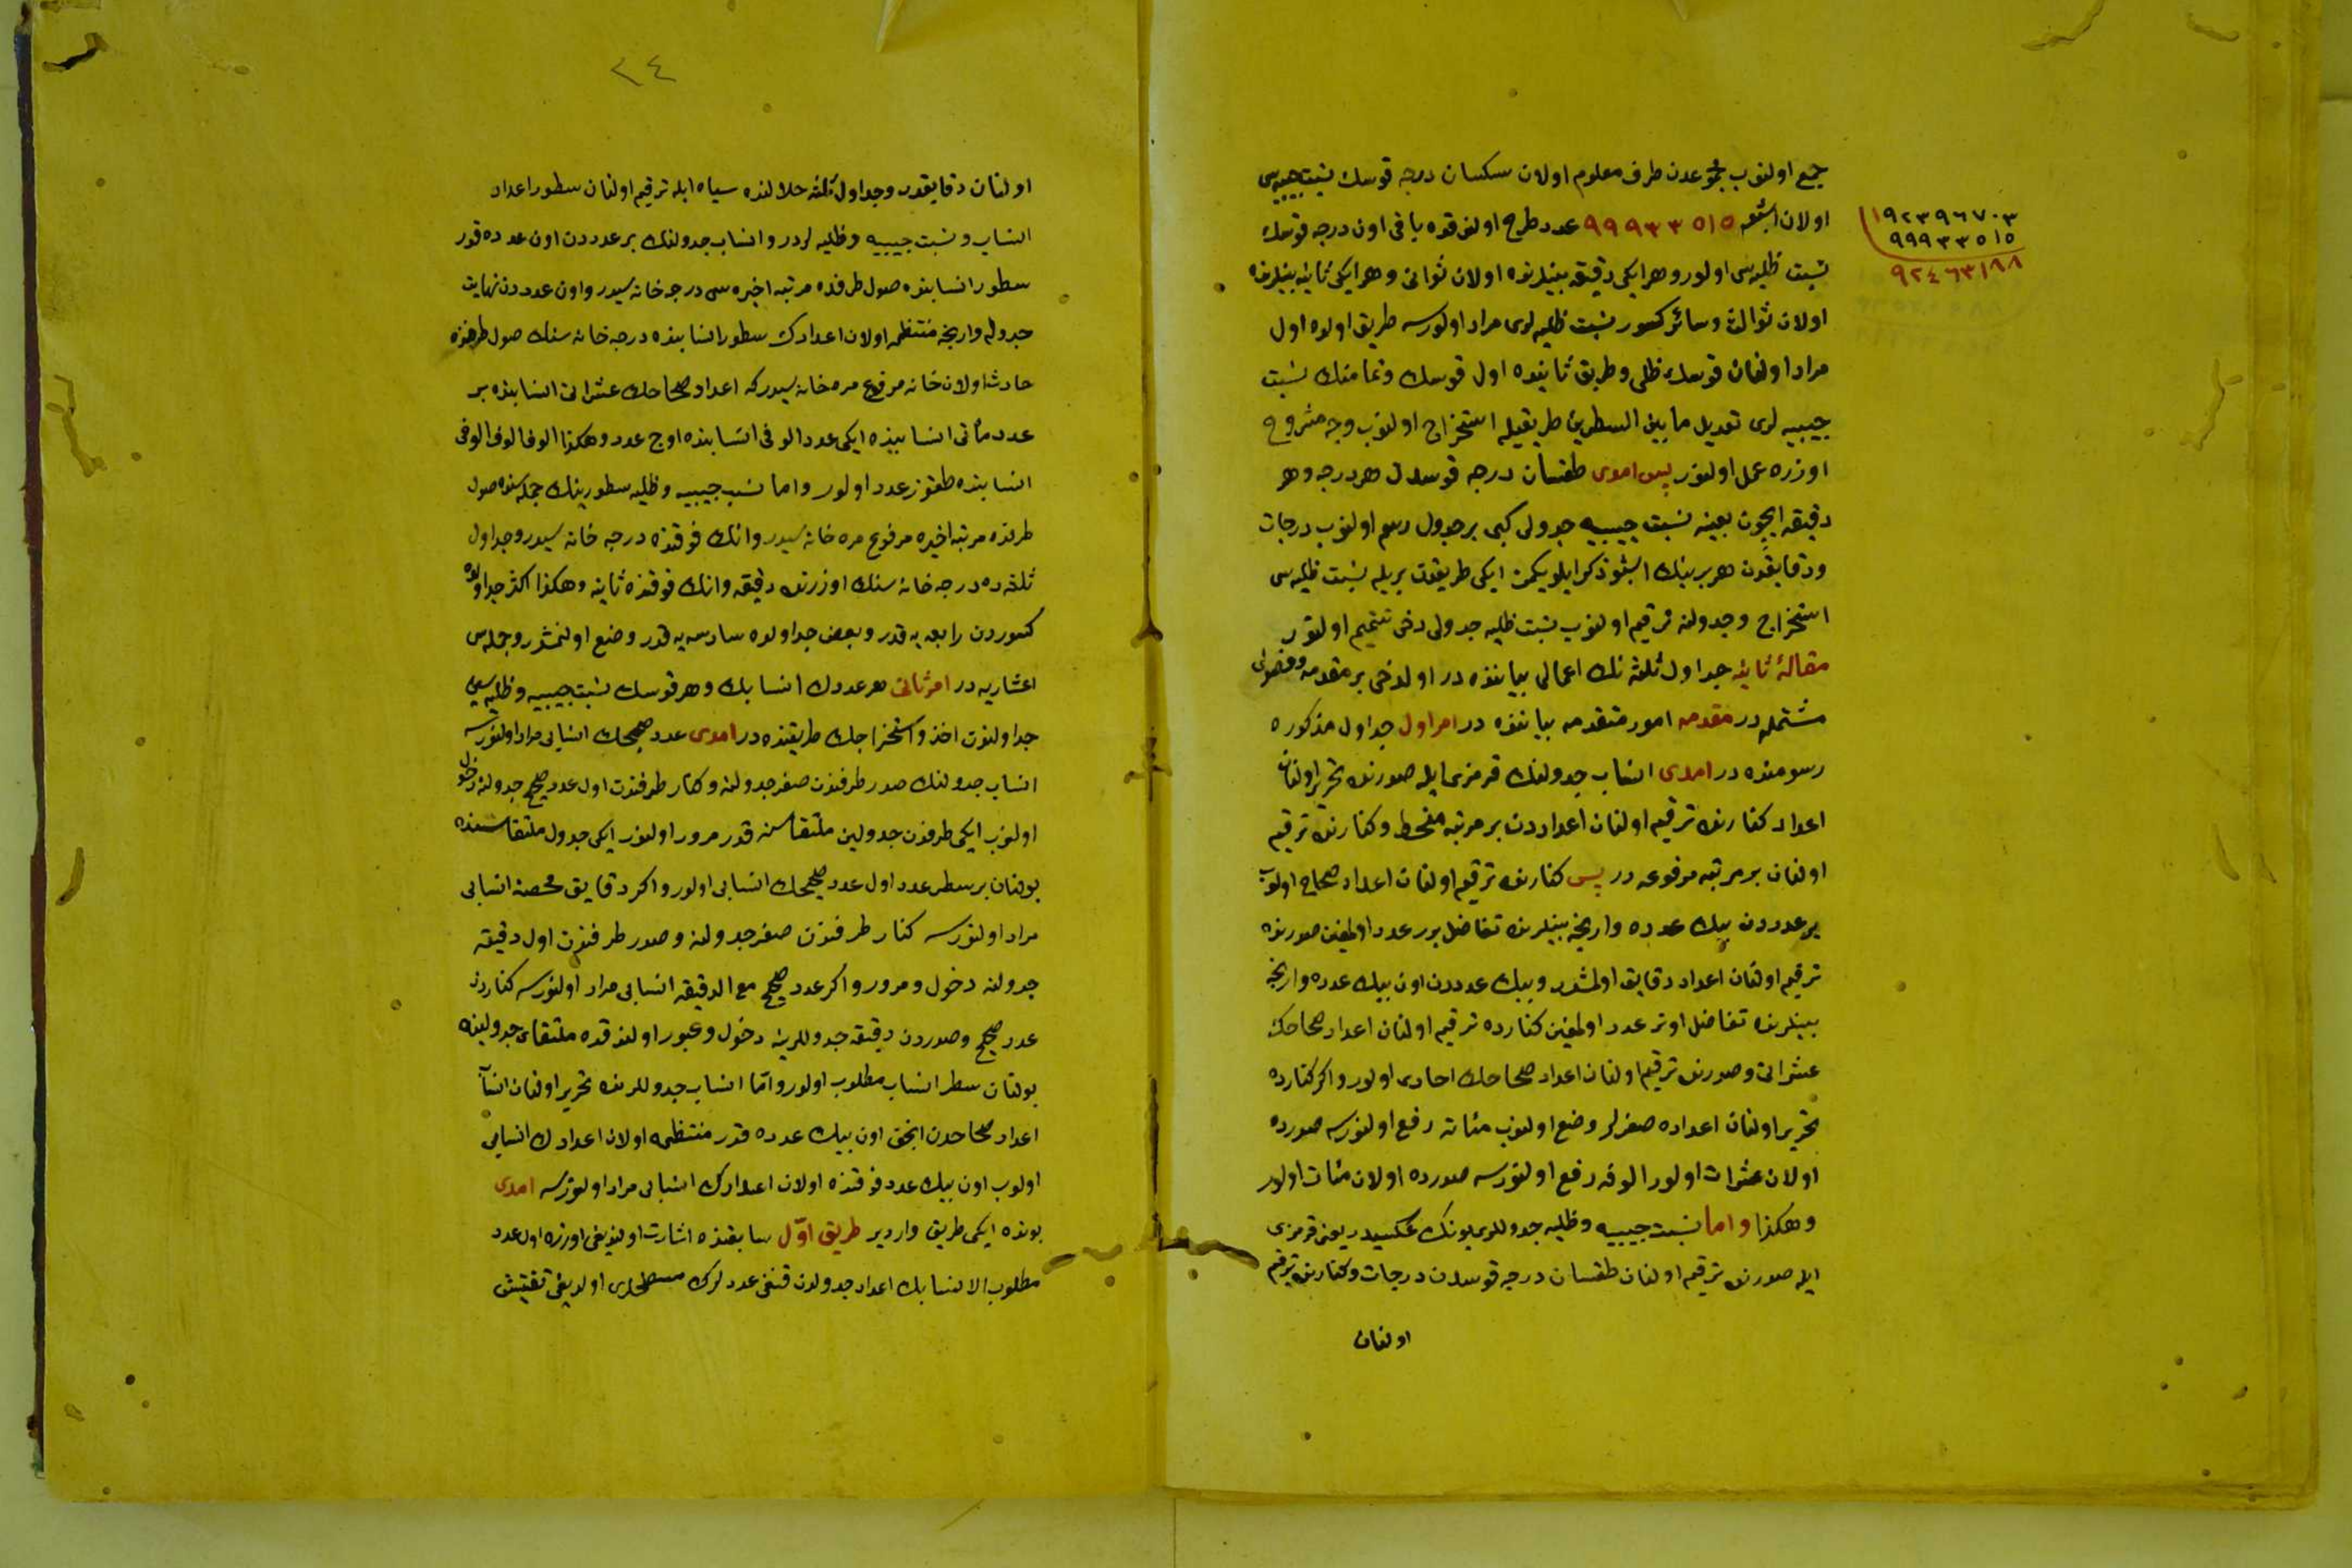 جمع اولنوب مجموعدن طرف معلوم اولان سكسان درجه قوسك نسبت جيبيه سی
اولان اشبو ٩٩٩٣٣٥١٥ عدد طرح اولندقده باقی اون درجه قوسك
نسبت ظليه سی اولور وهر ايكی دقيقه بينلرنده اولان ثوانی وهر ايكی ثانيه بينلرنده
اولان ثوالث وسائر كسور نسبت ظليه لری مراد اولورسه طريق اولده اول
مراد اولنان قوسك ظلی وطريق ثانيده اول قوسك وتمامنك نسبت
جيبيه لری تعديل ما بين السطرين طريقيله استخراج اولنوب وجه مشروح
اوزره عمل اولنور پس امدی طقسان درجه قوسدن هر درجه وهر
دقيقه ايچون بعينه نسبت جيبيه جدولی كبی بر جدول رسم اولنوب درجات
ودقايقدن هر برينك اشبو ذكر ايلديكمز ايكی طريقدن بريله نسبت ظليه سی
استخراج وجدولنه ترقيم اولنوب نسبت ظليه جدولی دخی تتميم اولنور
مقالۀ ثانيه جداول ثلثه نك اعمالی بياننده در اولدخی بر مقدمه وفصولی
مشتمله در مقدمه امور متقدمه بياننده در امر اول جداول مذكوره
رسومنده در امدی انساب جدولنك قرمزی ايله صدرنده تحرير اولنان
اعداد كنارنده ترقيم اولنان اعداددن بر مرتبه منحط وكنارنده ترقيم
اولنان بر مرتبه مرفوعه در پس كنارنده ترقيم اولنان اعداد صحاح اولوب
بر عدددن بيك عدده وارنجه بينلرنده تفاضل برر عدد اولمغين صدرنده
ترقيم اولنان اعداد دقايق اولمشدر وبيك عدددن اون بيك عدده وارنجه
بينلرنده تفاضل اونر عدد اولمغين كنارده ترقيم اولنان اعداد صحاحك
عشراتی وصدرنده ترقيم اولنان اعداد صحاحك احادی اولور واكر كنارده
تحرير اولنان اعداده صفرلر وضع اولنوب مئاته رفع اولنورسه صدرده
اولان عشرات اولور الوفه رفع اولنورسه صدرده اولان مئات اولور
وهكذا واما نسبت جيبيه وظليه جدوللری بونك عكسيدر يعنی قرمزی
ايله صدرنده ترقيم اولنان طقسان درجه قوسدن درجات وكنارنده ترقيم
اولنان
١٩٢٣٩٦٧٠٣
٩٩٩٣٣٥١٥
٩٢٤٦٣١٨٨
٢٤
اولنان دقايقدر وجداول ثلثه خلالنده سياه ايله ترقيم اولنان سطور اعداد
انساب ونسبت جيبيه وظليه لردر وانساب جدولنك بر عدددن اون عدده قدر
سطور انسابنده صول طرفده مرتبه اخيره سی درجه خانه سيدر واون عدددن نهايت
جدوله وارنجه منتظمه اولان اعدادك سطور انسابنده درجه خانه سنك صول طرفنده
حادث اولان خانه مرفوع مره خانه سيدر كه اعداد صحاحك عشراتی انسابنده بر
عدد مأتی انسابنده ايكی عدد الوفی انسابنده اوچ عدد وهكذا الوف الوف الوفی
انسابنده طقوز عدد اولور واما نسب جيبيه وظليه سطورينك جمله سنده صول
طرفده مرتبه اخيره مرفوع مره خانه سيدر وانك فوقنده درجه خانه سيدر وجداول
ثلثه ده درجه خانه سنك اوزرنده دقيقه وانك فوقنده ثانيه وهكذا اكثر جداولده
كسوردن رابعه يه قدر وبعض جداولده سادسه يه قدر وضع اولنمشدر وجمله سی
اعشاريه در امر ثانی هر عددك انسابك وهر قوسك نسبت جيبيه وظليه سی
جداولندن اخذ واستخراجك طريقنده در امدی عدد صحيحك انسابی مراد اولنورسه
انساب جدولنك صدر طرفندن صفر جدولنه وكنار طرفندن اول عدد صحيح جدولنه دخول
اولنوب ايكی طرفدن جدولين ملتقاسنه قدر مرور اولنور ايكی جدول ملتقاسنده
بولنان بر سطر عدد اول عدد صحيحك انسابی اولور واكر دقايق محضه انسابی
مراد اولنورسه كنار طرفندن صفر جدولنه وصدر طرفندن اول دقيقه
جدولنه دخول ومرور واكر عدد صحيح مع الدقيقه انسابی مراد اولنورسه كناردن
عدد صحيح وصدردن دقيقه جدوللرينه دخول وعبور اولندقده ملتقای جدولينده
بولنان سطر انساب مطلوب اولور واما انساب جدوللرنده تحرير اولنان انساب
اعداد صحاحدن انجق اون بيك عدده قدر منتظمه اولان اعدادك انسابی
اولوب اون بيك عدد فوقنده اولان اعدادك انسابی مراد اولنورسه امدی
بونده ايكی طريق واردير طريق اول سابقنده اشارت اولنديغی اوزره اول عدد
مطلوب الانسابك اعداد جدولدن قنغی عددلرك مسطحلری اولديغی تفتيش